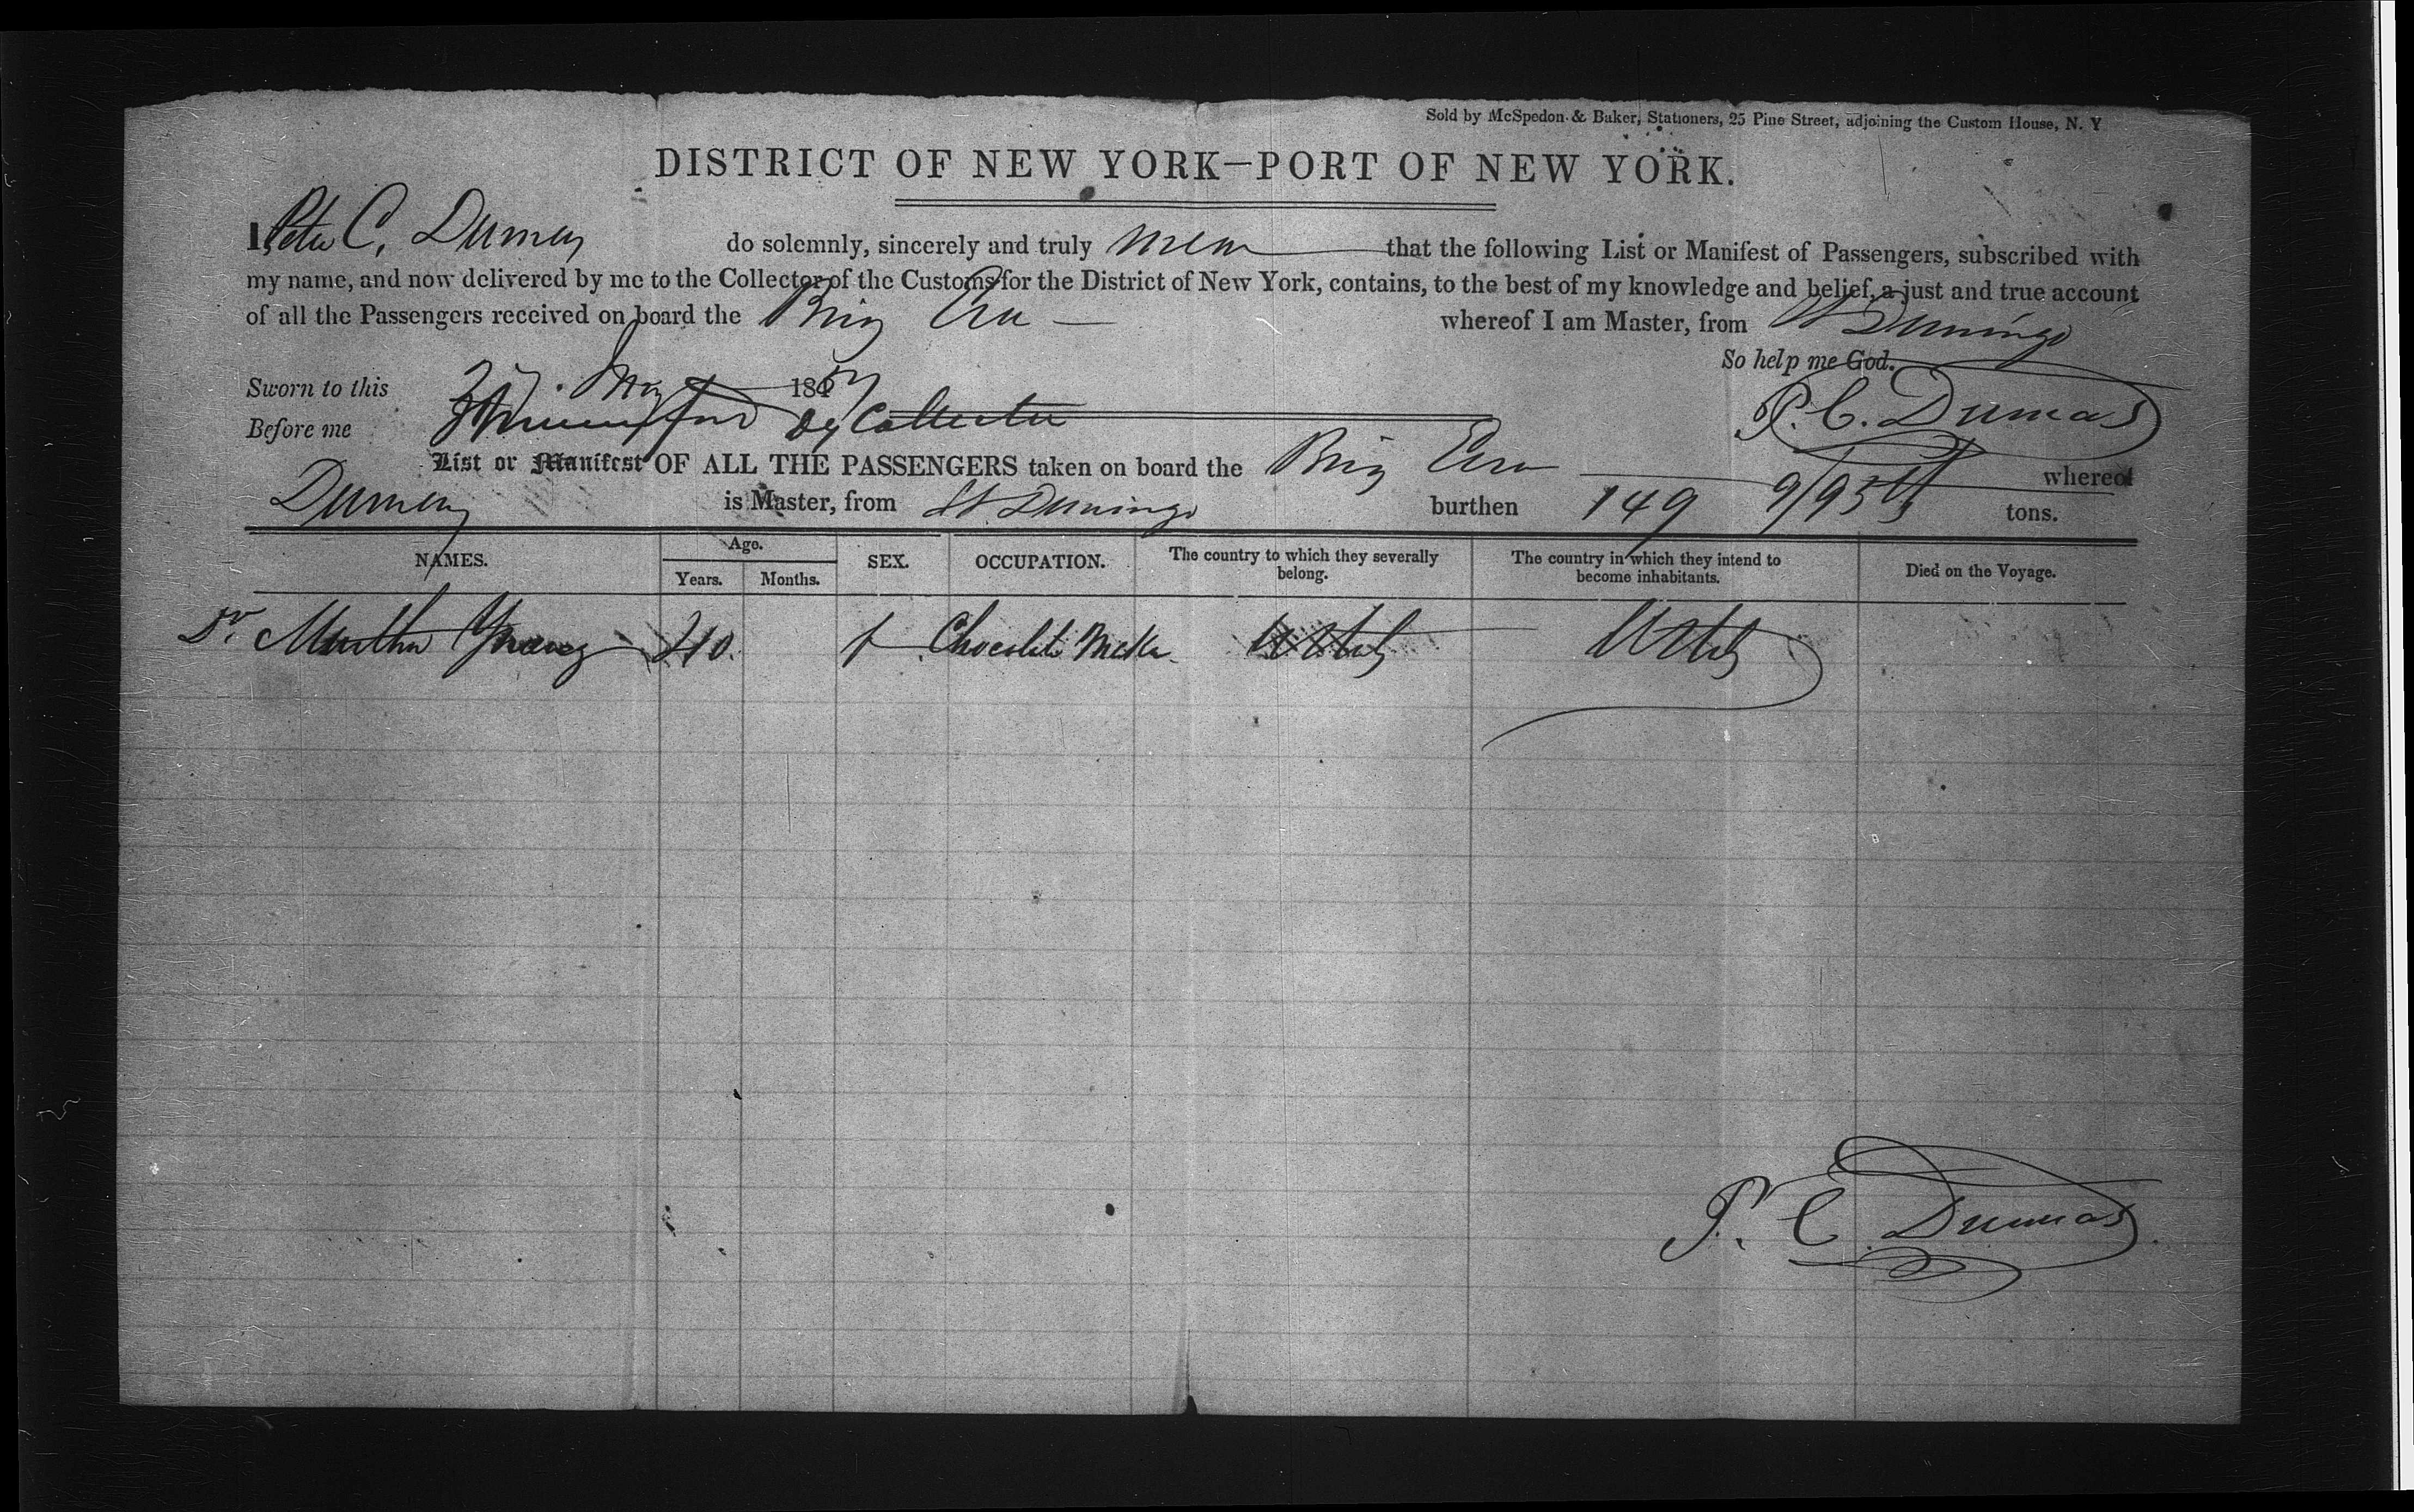 Sold by McSpedon & Baker, Stationers, 25 Pine Street, adjoining the Custom House, N. Y
DISTRICT OF NEW YORK—PORT OF NEW YORK.
I, Peter C. Dumas do solemnly, sincerely and truly swear that the following List or Manifest of Passengers, subscribed with
my name, and now delivered by me to the Collector of the Customs for the District of New York, contains, to the best of my knowledge and belief, a just and true account
of all the Passengers received on board the Brig Era whereof I am Master, from St Domingo
So help me God.
Sworn to this 27. May 184
Before me Dy Collector
P. C. Dumas
List or Manifest OF ALL THE PASSENGERS taken on board the Brig Era whereof
Dumas is Master, from St. Domingo burthen 149 9/95 tons.
NAMES. Age. Years. Months. SEX. OCCUPATION. The country to which they severally belong. The country in which they intend to become inhabitants. Died on the Voyage.
Martha Young 40. f Chocolate Maker
P. C. Dumas